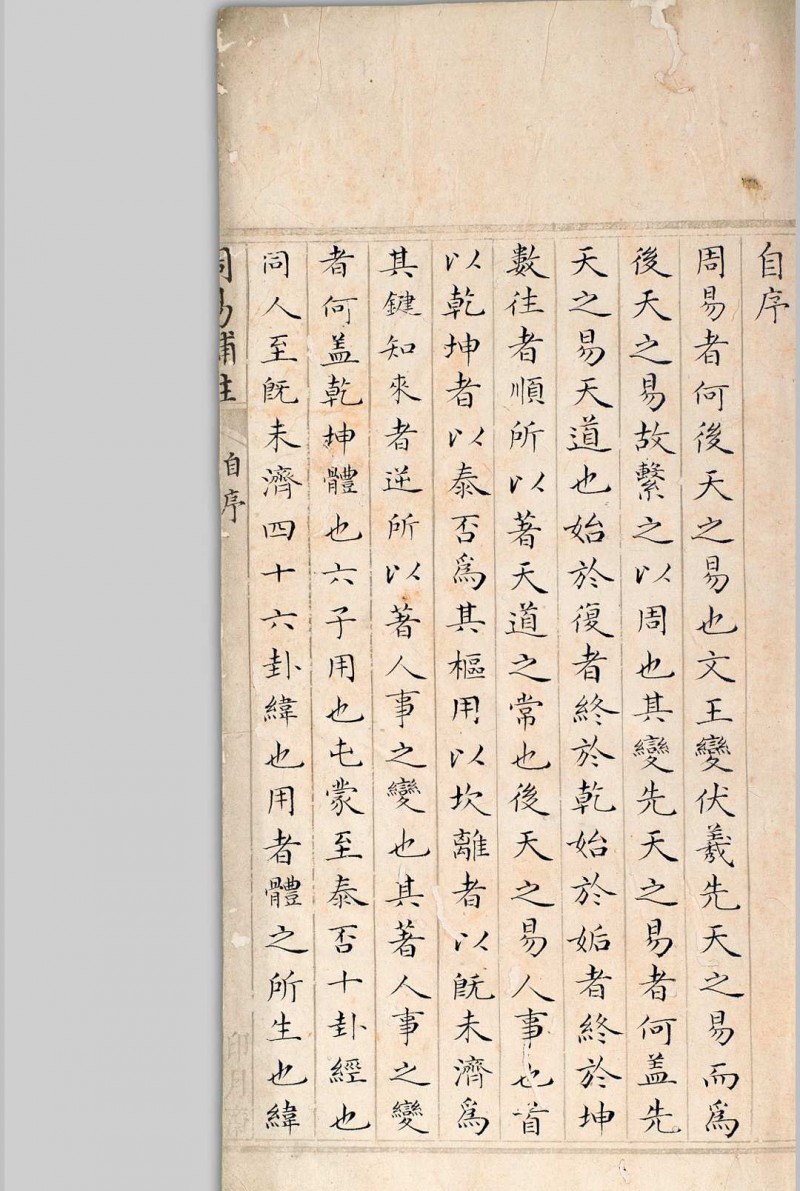 自序
周易者何後天之易也文王變伏羲先天之易而爲
後天之易故繫之以周也其變先天之易者何盖先
天之易天道也始於復者終於乾始於姤者終於坤
數往者順所以著天道之常也後天之易人事也首
以乾坤者以泰否爲其樞用以坎離者以旣未濟爲
其鍵知來者逆所以著人事之變也其著人事之變
者何盖乾坤體也六子用也屯蒙至泰否十卦經也
同人至旣未濟四十六卦緯也用者體之所生也緯
周易補注
自序